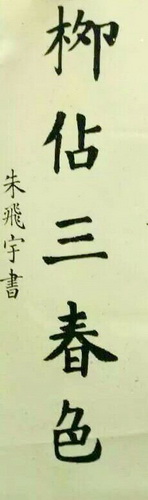 柳佔三春色
朱飛宇書